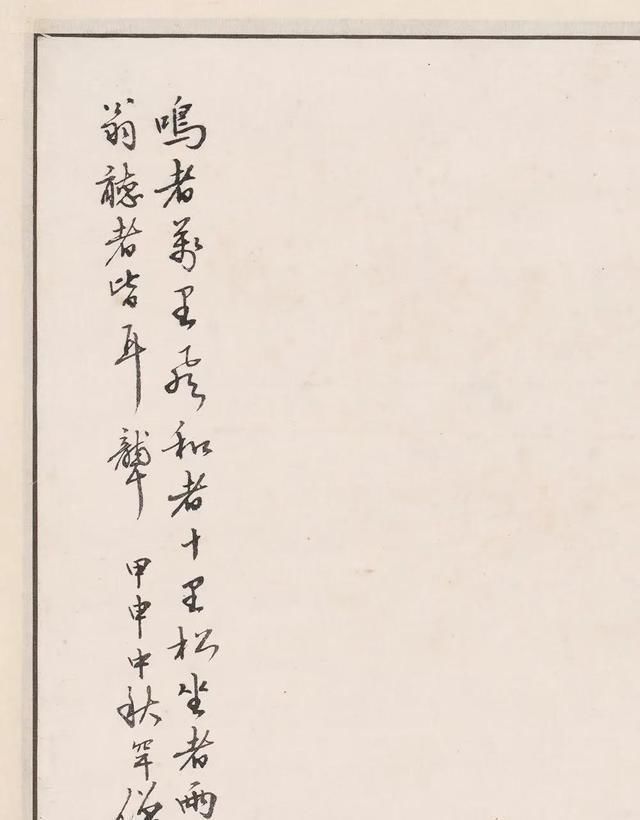 鳴者萬里飛和者十里松坐者兩
翁聽者皆耳聾 甲申中秋罕僧